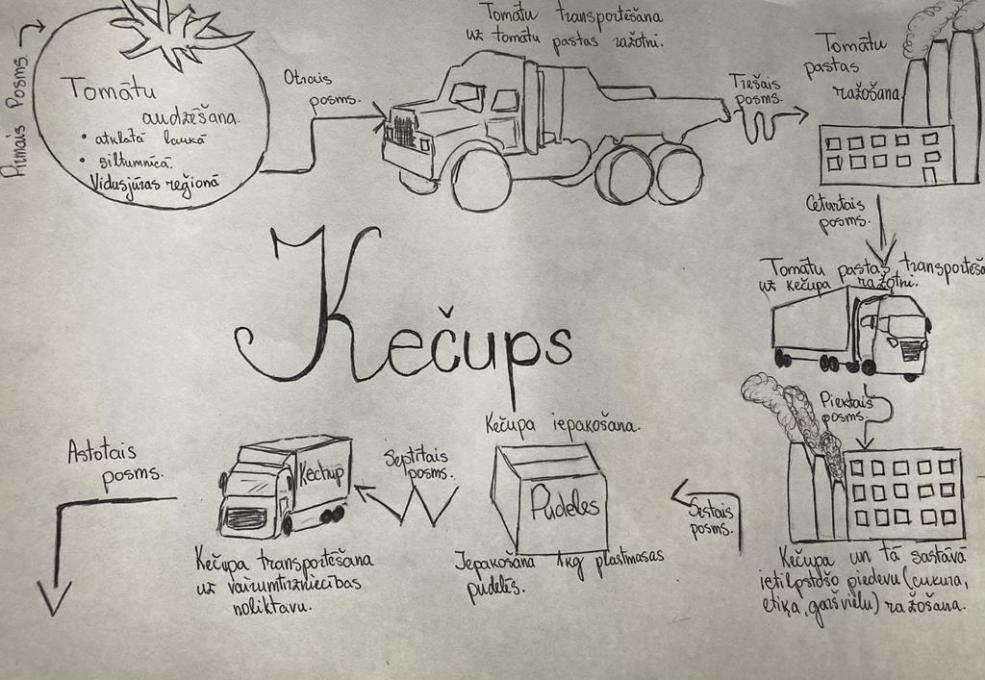 Pirmais Posms
Tomātu
audzēšana.
• atklātā laukā
• siltumnīcā.
Vidusjūras reģionā
Otrais
posms.
Tomātu transportēšana
uz tomātu pastas ražotni.
Trešais
posms.
Tomātu
pastas
ražošana.
Ceturtais
posms.
Tomātu pastas transportēša
uz kečupa ražotni.
Piektais
posms.
Kečupa un tā sastāvā
ietilpstošo piedevu (cukura,
etiķa, garšvielu) ražošana.
Sestais
posms.
Kečups
Kečupa iepakošana.
Pudeles
Iepakošana 1kg plastmasas
pudelēs.
Septītais
posms.
Kechup
Kečupa transportēšana
uz vairumtirzniecības
noliktavu.
Astotais
posms.